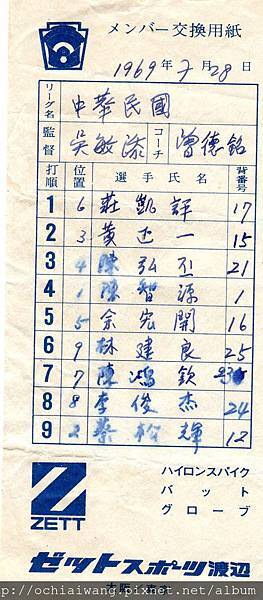 メンバー交換用紙
1969年7月28日
リーグ名 中華民國
監督 吳敏添 コーチ 曾德銘
打順 位置 選手氏名 背番号
1 6 莊凱評 17
2 3 黃正一 15
3 4 陳弘丕 21
4 1 陳智源 1
5 5 余宏開 16
6 9 林建良 25
7 7 陳鴻欽
8 8 李俊杰 24
9 2 蔡松輝 12
ZETT
ハイロンスパイク
バット
グローブ
ゼットスポーツ渡辺
http://ochiaiwang.pixnet.net/album